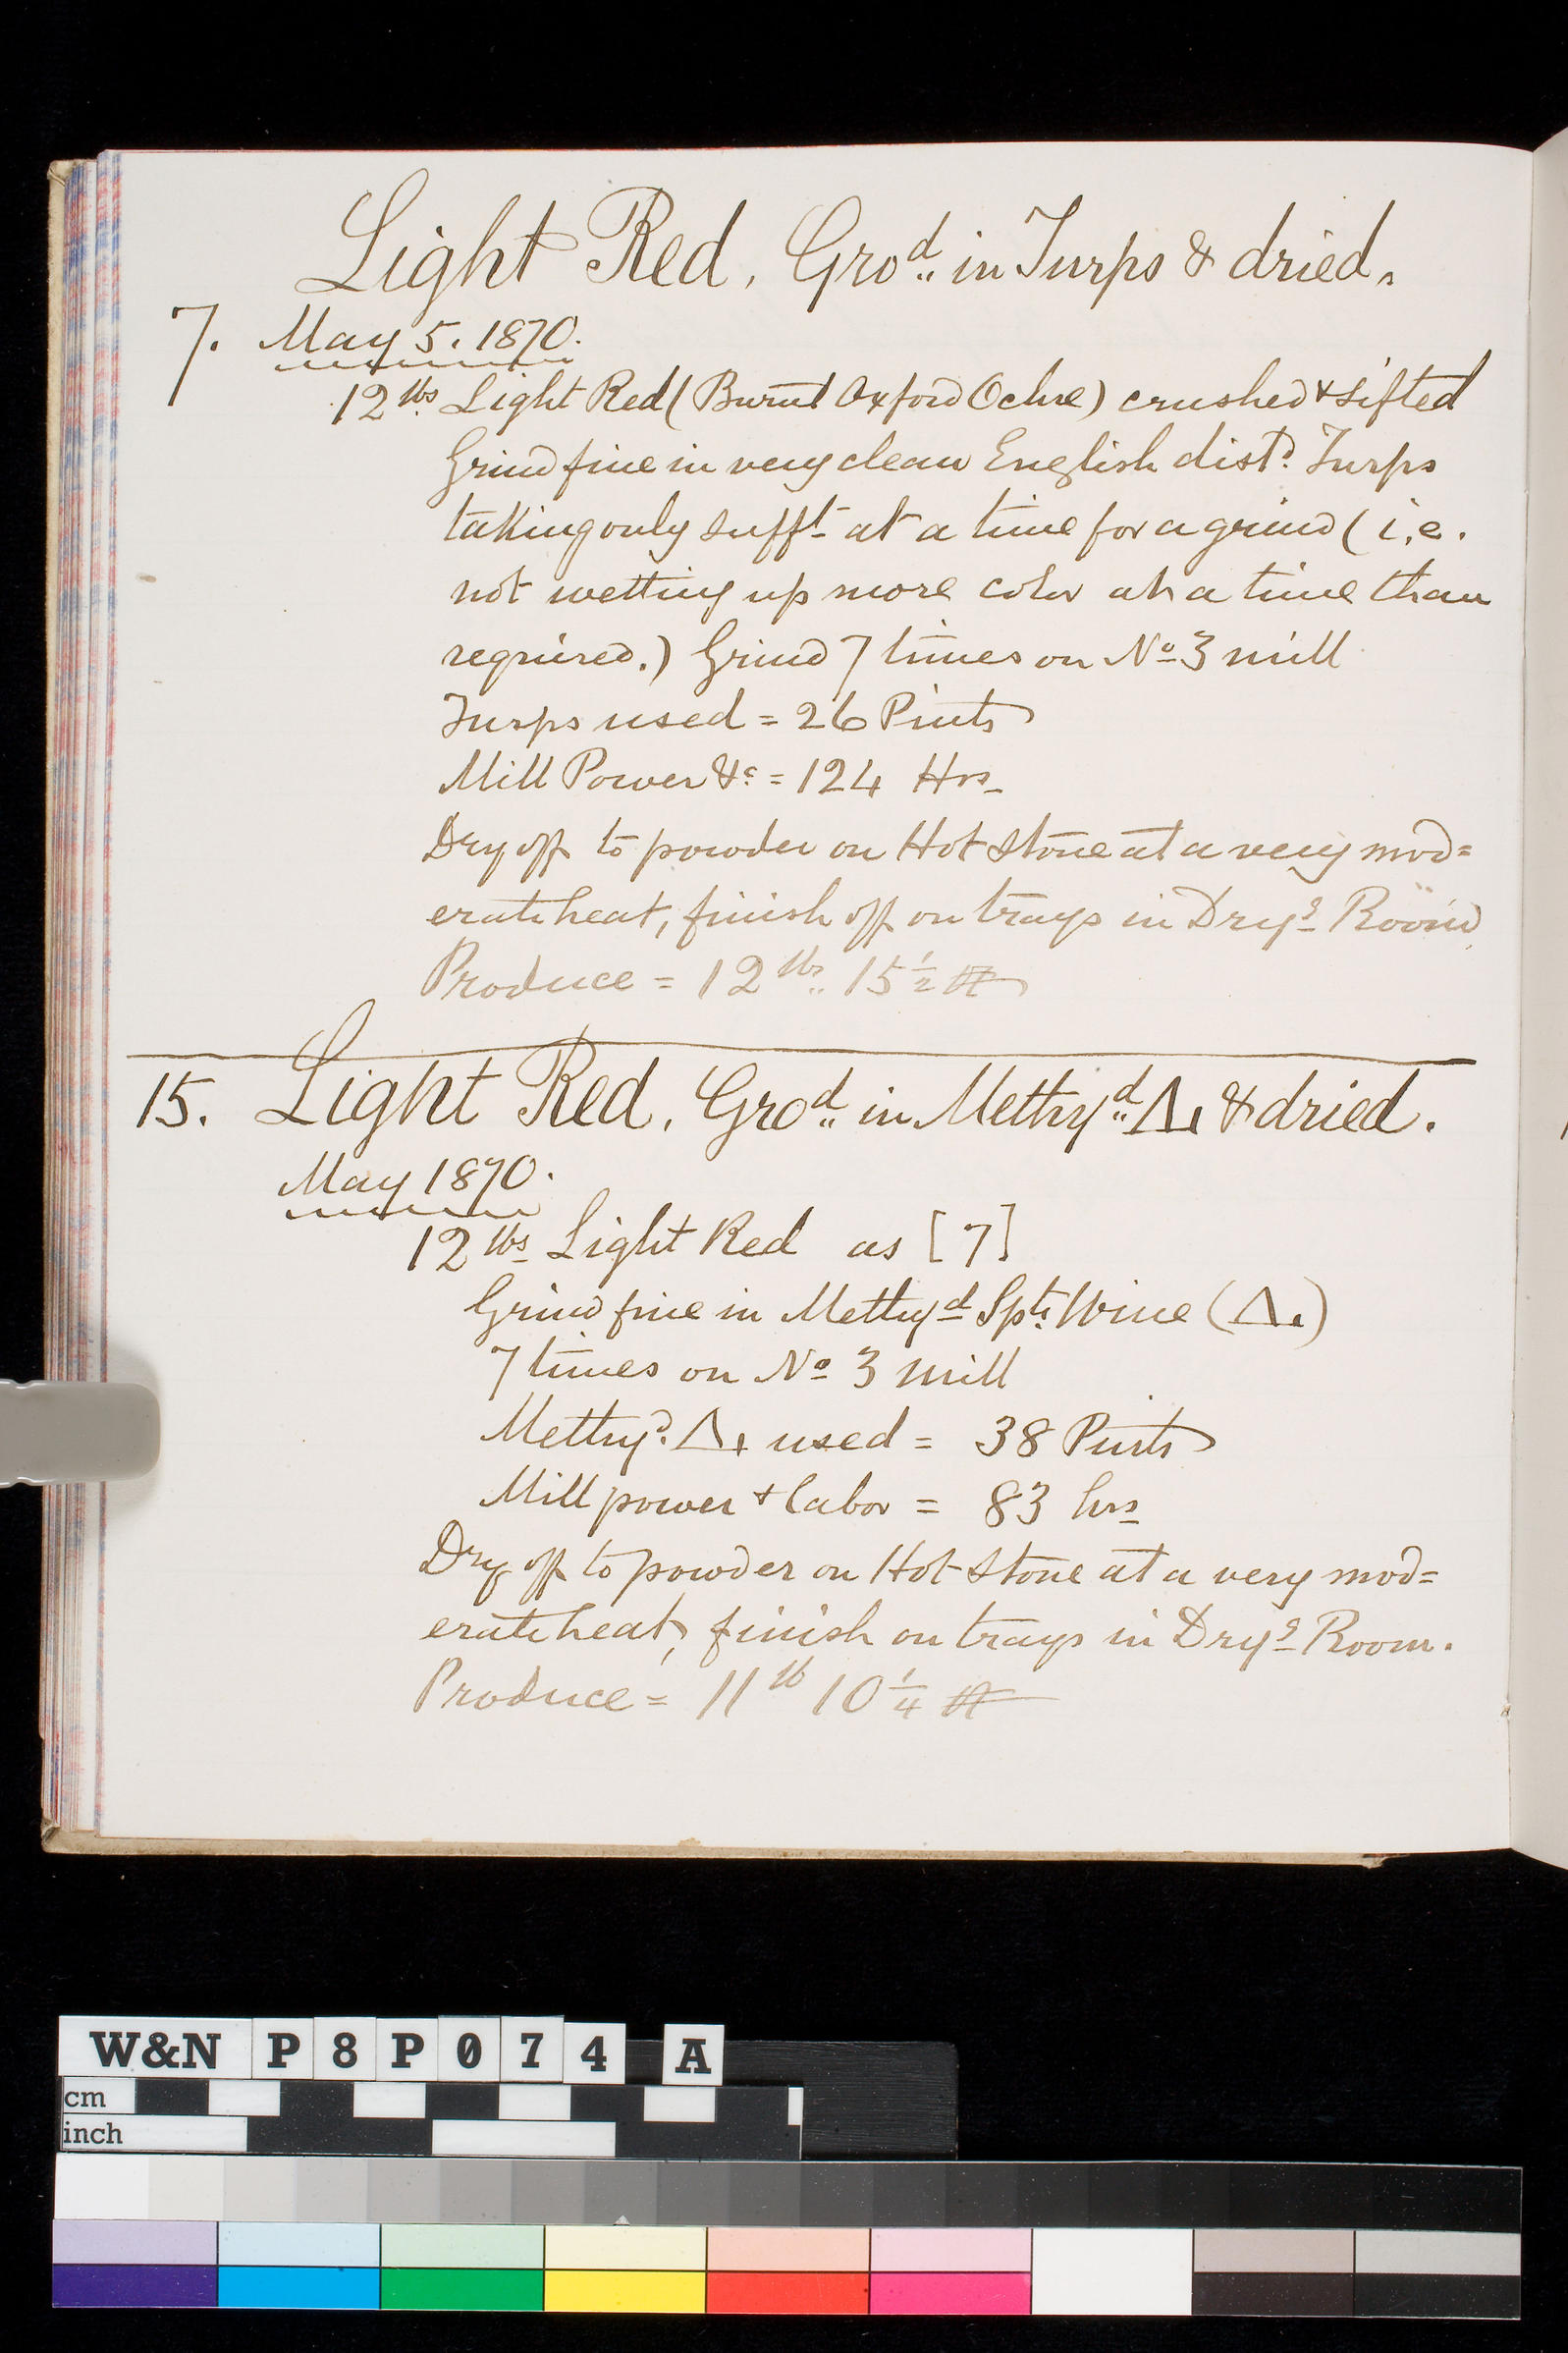 Light Red, Gro^d.. in Turps & dried.
7. May 5. 1870.
12 lbs Light Red (Burnt Oxford Ochre) crushed & sifted
Grind fine in very clean English dist^d. Turps
taking only suff^t at a time for a grind (i.e.
not wetting up more color at a time than
required.) Grind 7 times on No 3 mill
Turps used = 26 Pints
Mill Power &c = 124 Hrs
Dry off to powder on Hot Stone at a very mod=
erate heat, finish off on trays in Dry^g Room
Produce = 12 lbs.. 15 1/2
15. Light Red, Gro^d.. in Methy^d.. Δ. & dried.
May 1870.
12 lbs Light Red as [7]
Grind fine in Methy^d Spts Wine (Δ.)
7 times on No 3 mill
Methy^d. Δ. used = 38 Pints
Mill power & labor = 83 hrs
Dry off to powder on Hot Stone at a very mod=
erate heat, finish on trays in Dry^g Room.
Produce = 11 lb 10 1/4
W&N P8P074 A
cm
inch